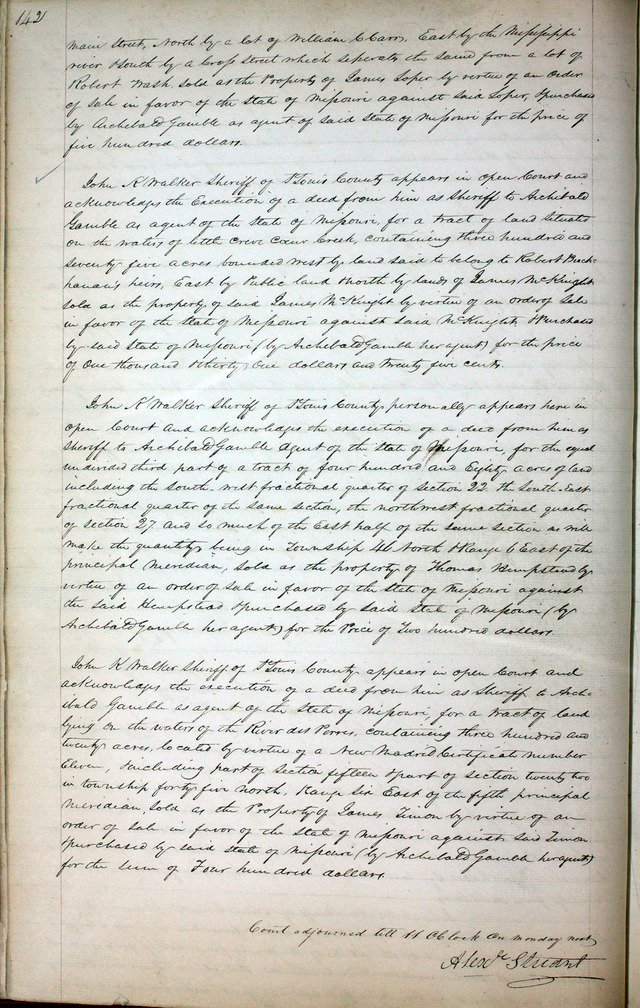 142
main Street, North by a lot of William C Carr, East by the Mississippi
river & South by a Cross Street which seperates the same from a lot of
Robert Wash, sold as the Property of James Soper by virtue of an Order
of sale in favor of the State of Missouri against said Soper, & purchased
by Archibald Gamble as agent of said State of Missouri for the price of
five hundred dollars.
John K Walker Sheriff of St Louis County appears in open Court and
acknowledges the Execution of a deed from him as Sheriff to Archibald
Gamble as agent of the State of Missouri, for a tract of land situated
on the waters of little creve Cœur Creek, containing three hundred and
seventy five acres bounded west by land said to belong to Robert Buck-
hanan's heirs, East by Public land & North by lands of James McKnight
sold as the property of said James McKnight by virtue of an order of sale
in favor of the State of Missouri against said McKnight, & Purchased
by said State of Missouri (by Archibald Gamble her agent) for the price
of One thousand & thirty One dollars and twenty five cents.
John K Walker Sheriff of St Louis County, personally appears here in
open Court and acknowledges the execution of a deed from him as
Sheriff to Archibald Gamble Agent of the State of Missouri, for the equal
undivided third part of a tract of four hundred and Eighty acres of land
including the South west fractional quarter of section 22. the South East
fractional quarter of the same section, the northwest fractional quarter
of section 27 and so much of the East half of the same section as will
make the quantity, being in Township 46 North & Range 6 East of the
principal meridian, sold as the property of Thomas Hempstead by
virtue of an order of sale in favor of the State of Missouri against
the said Hempstead & purchased by said State of Missouri (by
Archibald Gamble her agent) for the Price of Two hundred dollars.
John K Walker Sheriff of St Louis County appears in open Court and
acknowledges the execution of a deed from him as Sheriff to Archi-
bald Gamble as agent of the State of Missouri, for a tract of land
lying on the waters of the River des Perres, containing three hundred and
twenty acres, located by virtue of a New Madrid Certificate number
Eleven, & including part of Section fifteen & part of section twenty two
in township forty five north, Range Six East of the fifth principal
meridian, sold as the Property of James Timon by virtue of an
order of sale in favor of the State of Missouri against said Timon
& purchased by said State of Missouri (by Archibald Gamble her agent)
for the sum of Four hundred dollars.
Court adjourned till 11 O Clock on monday next
Alexr Stuart